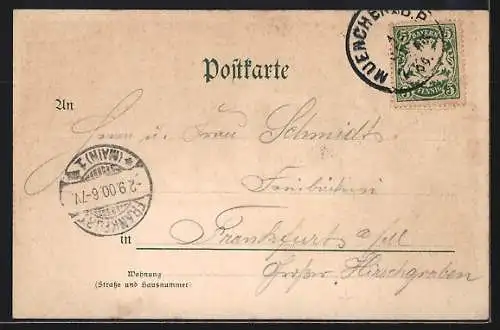 MUENCHEN B.P.
BAYERN
5 5
PFENNIG
Postkarte
An
Herrn u. Frau Schmidt
FRANKFURT (MAIN) 1
2.9.00.6-7V.
in Frankfurt a/M
Großer Hirschgraben
Wohnung
(Straße und Hausnummer)